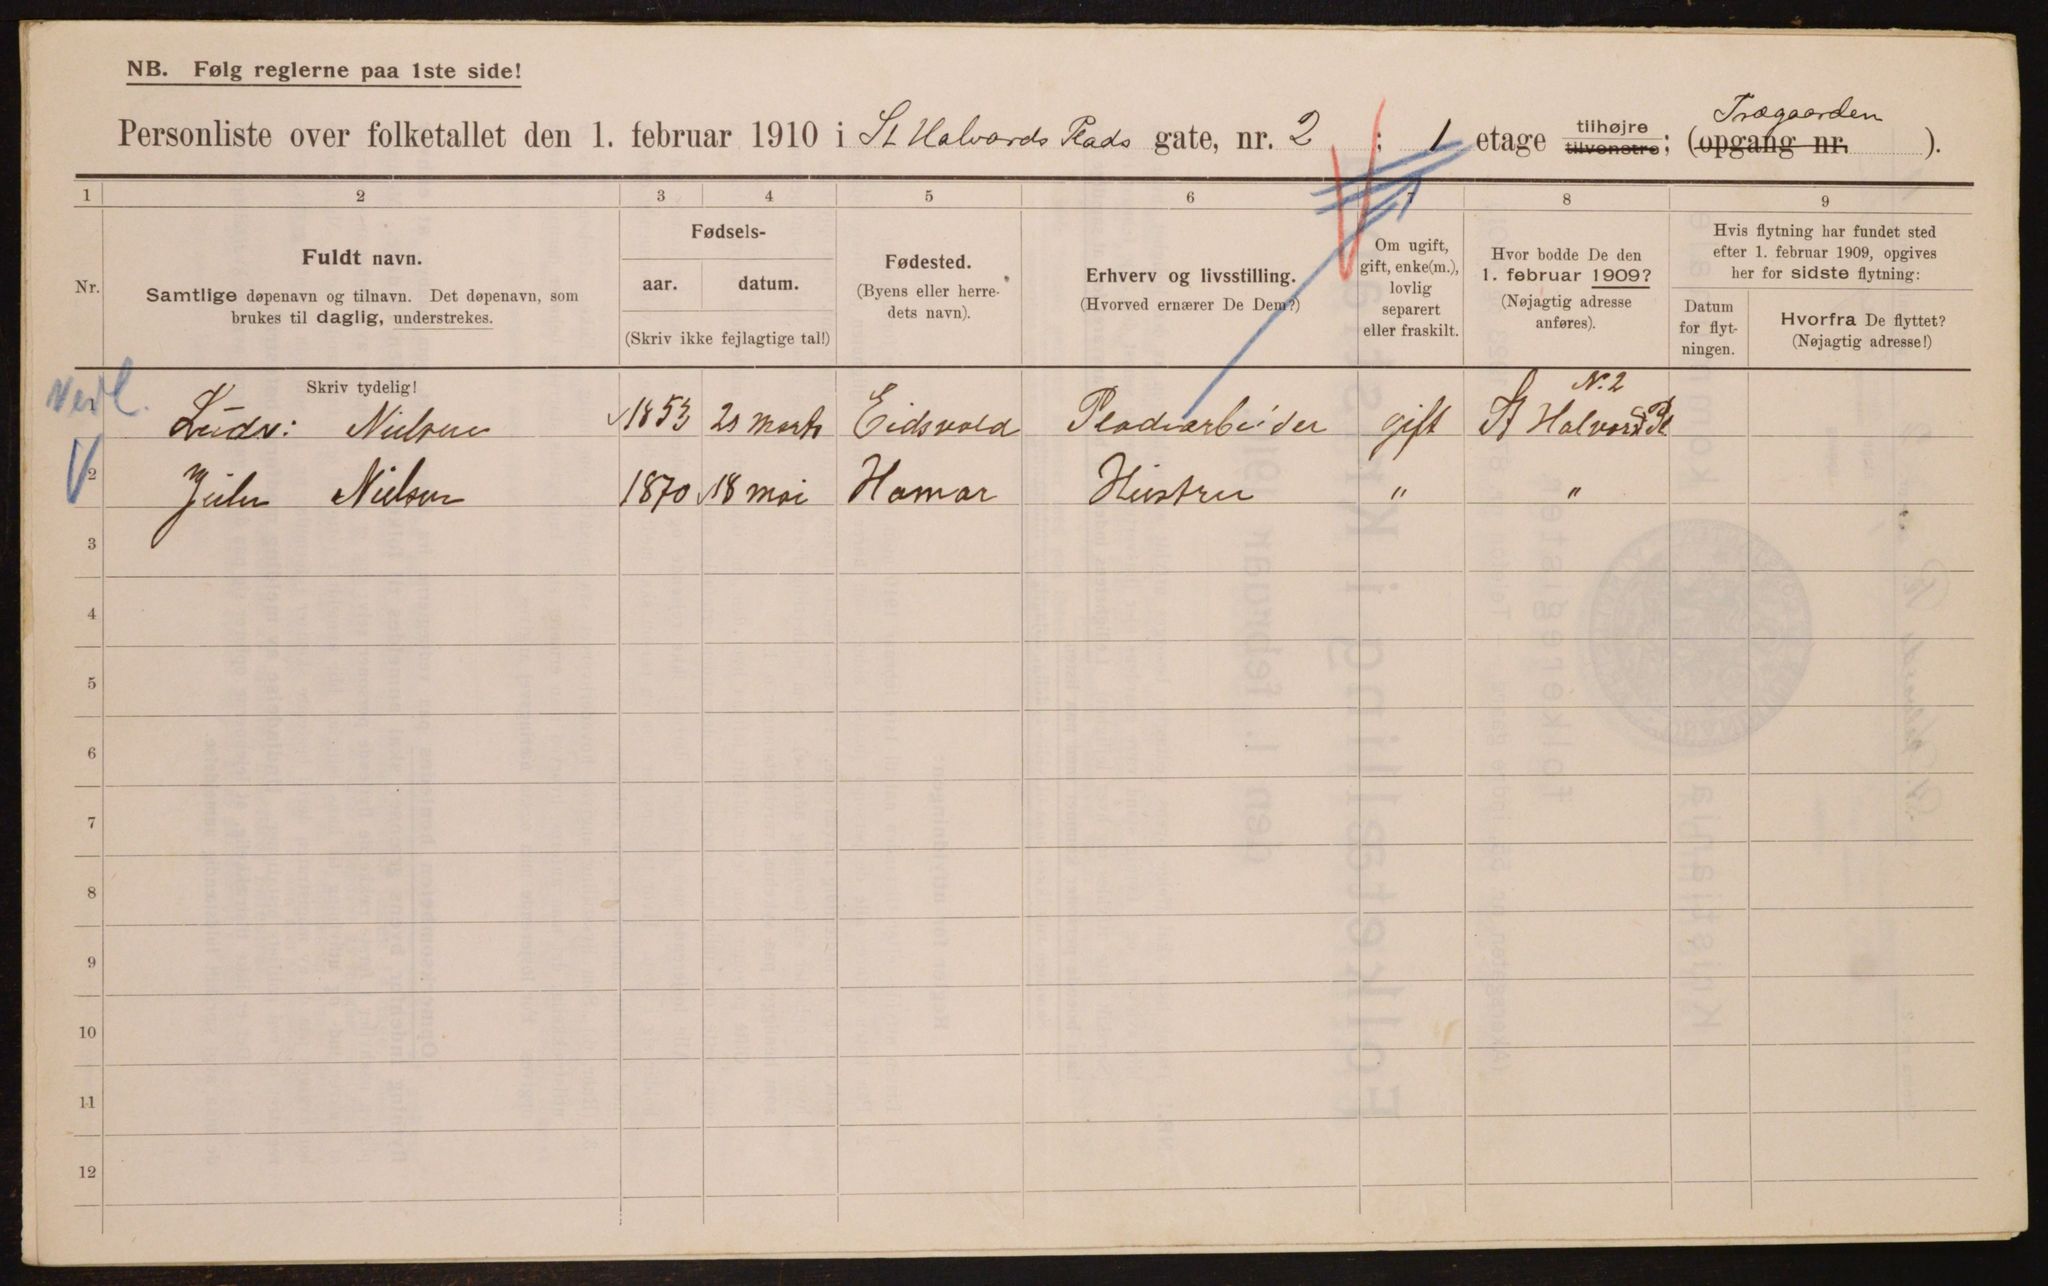 NB. Følg reglerne paa 1ste side!
Personliste over folketallet den 1. februar 1910 i St Halvards Plads gate, nr. 2 ; 1 etage tilhøjre tilvenstre; (opgang nr. Trægaarden ).
1 2 3 4 5 6 7 8 9
Nr.
Fuldt navn.
Samtlige døpenavn og tilnavn. Det døpenavn, som
brukes til daglig, understrekes.
Fødsels-
aar. datum.
(Skriv ikke fejlagtige tal!)
Fødested.
(Byens eller herre-
dets navn).
Erhverv og livsstilling.
(Hvorved ernærer De Dem?)
Om ugift,
gift, enke(m.),
lovlig
separert
eller fraskilt.
Hvor bodde De den
1. februar 1909?
(Nøjagtig adresse
anføres).
Hvis flytning har fundet sted
efter 1. februar 1909, opgives
her for sidste flytning:
Datum
for flyt-
ningen.
Hvorfra De flyttet?
(Nøjagtig adresse!)
Skriv tydelig!
N. 2
Ludv: Nielsen 1853 marts Eidsvold gift St Halvards Pl
2 Nielsen 1870 18 mai Hamar Hustru " "
3
4
5
6
7
8
9
10
11
12